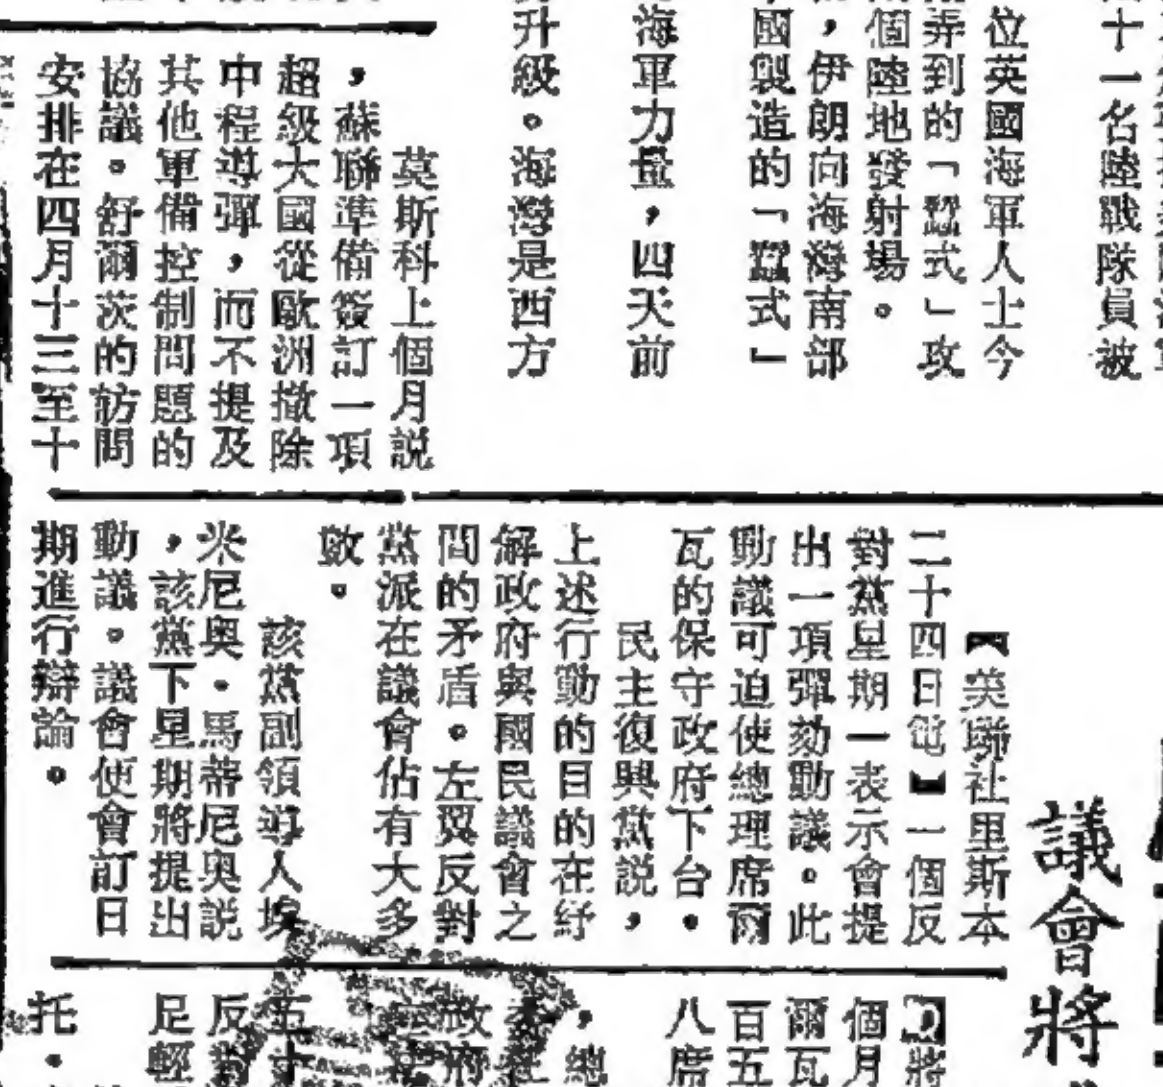 十一名陸戰隊員被
位英國海軍人士今
弄到的「蠶式」攻
個陸地發射場。
，伊朗向海灣南部
國製造的「蠶式」
海軍力量，四天前
升級。海灣是西方
莫斯科上個月説
，蘇聯準備簽訂一項
超級大國從歐洲撤除
中程導彈，而不提及
其他軍備控制問題的
協議。舒爾茨的訪問
安排在四月十三至十
議會將
【美聯社里斯本
二十四日電】一個反
對黨星期一表示會提
出一項彈劾動議。此
動議可迫使總理席爾
瓦的保守政府下台。
民主復興黨説，
上述行動的目的在紓
解政府與國民議會之
間的矛盾。左翼反對
黨派在議會佔有大多
數。
該黨副領導人埃
米尼奥・馬蒂尼奥説
，該黨下星期將提出
動議。議會便會訂日
期進行辯論。
將
個月
爾瓦
百五
八席
，總
政府
五十
反對
足輕
托・